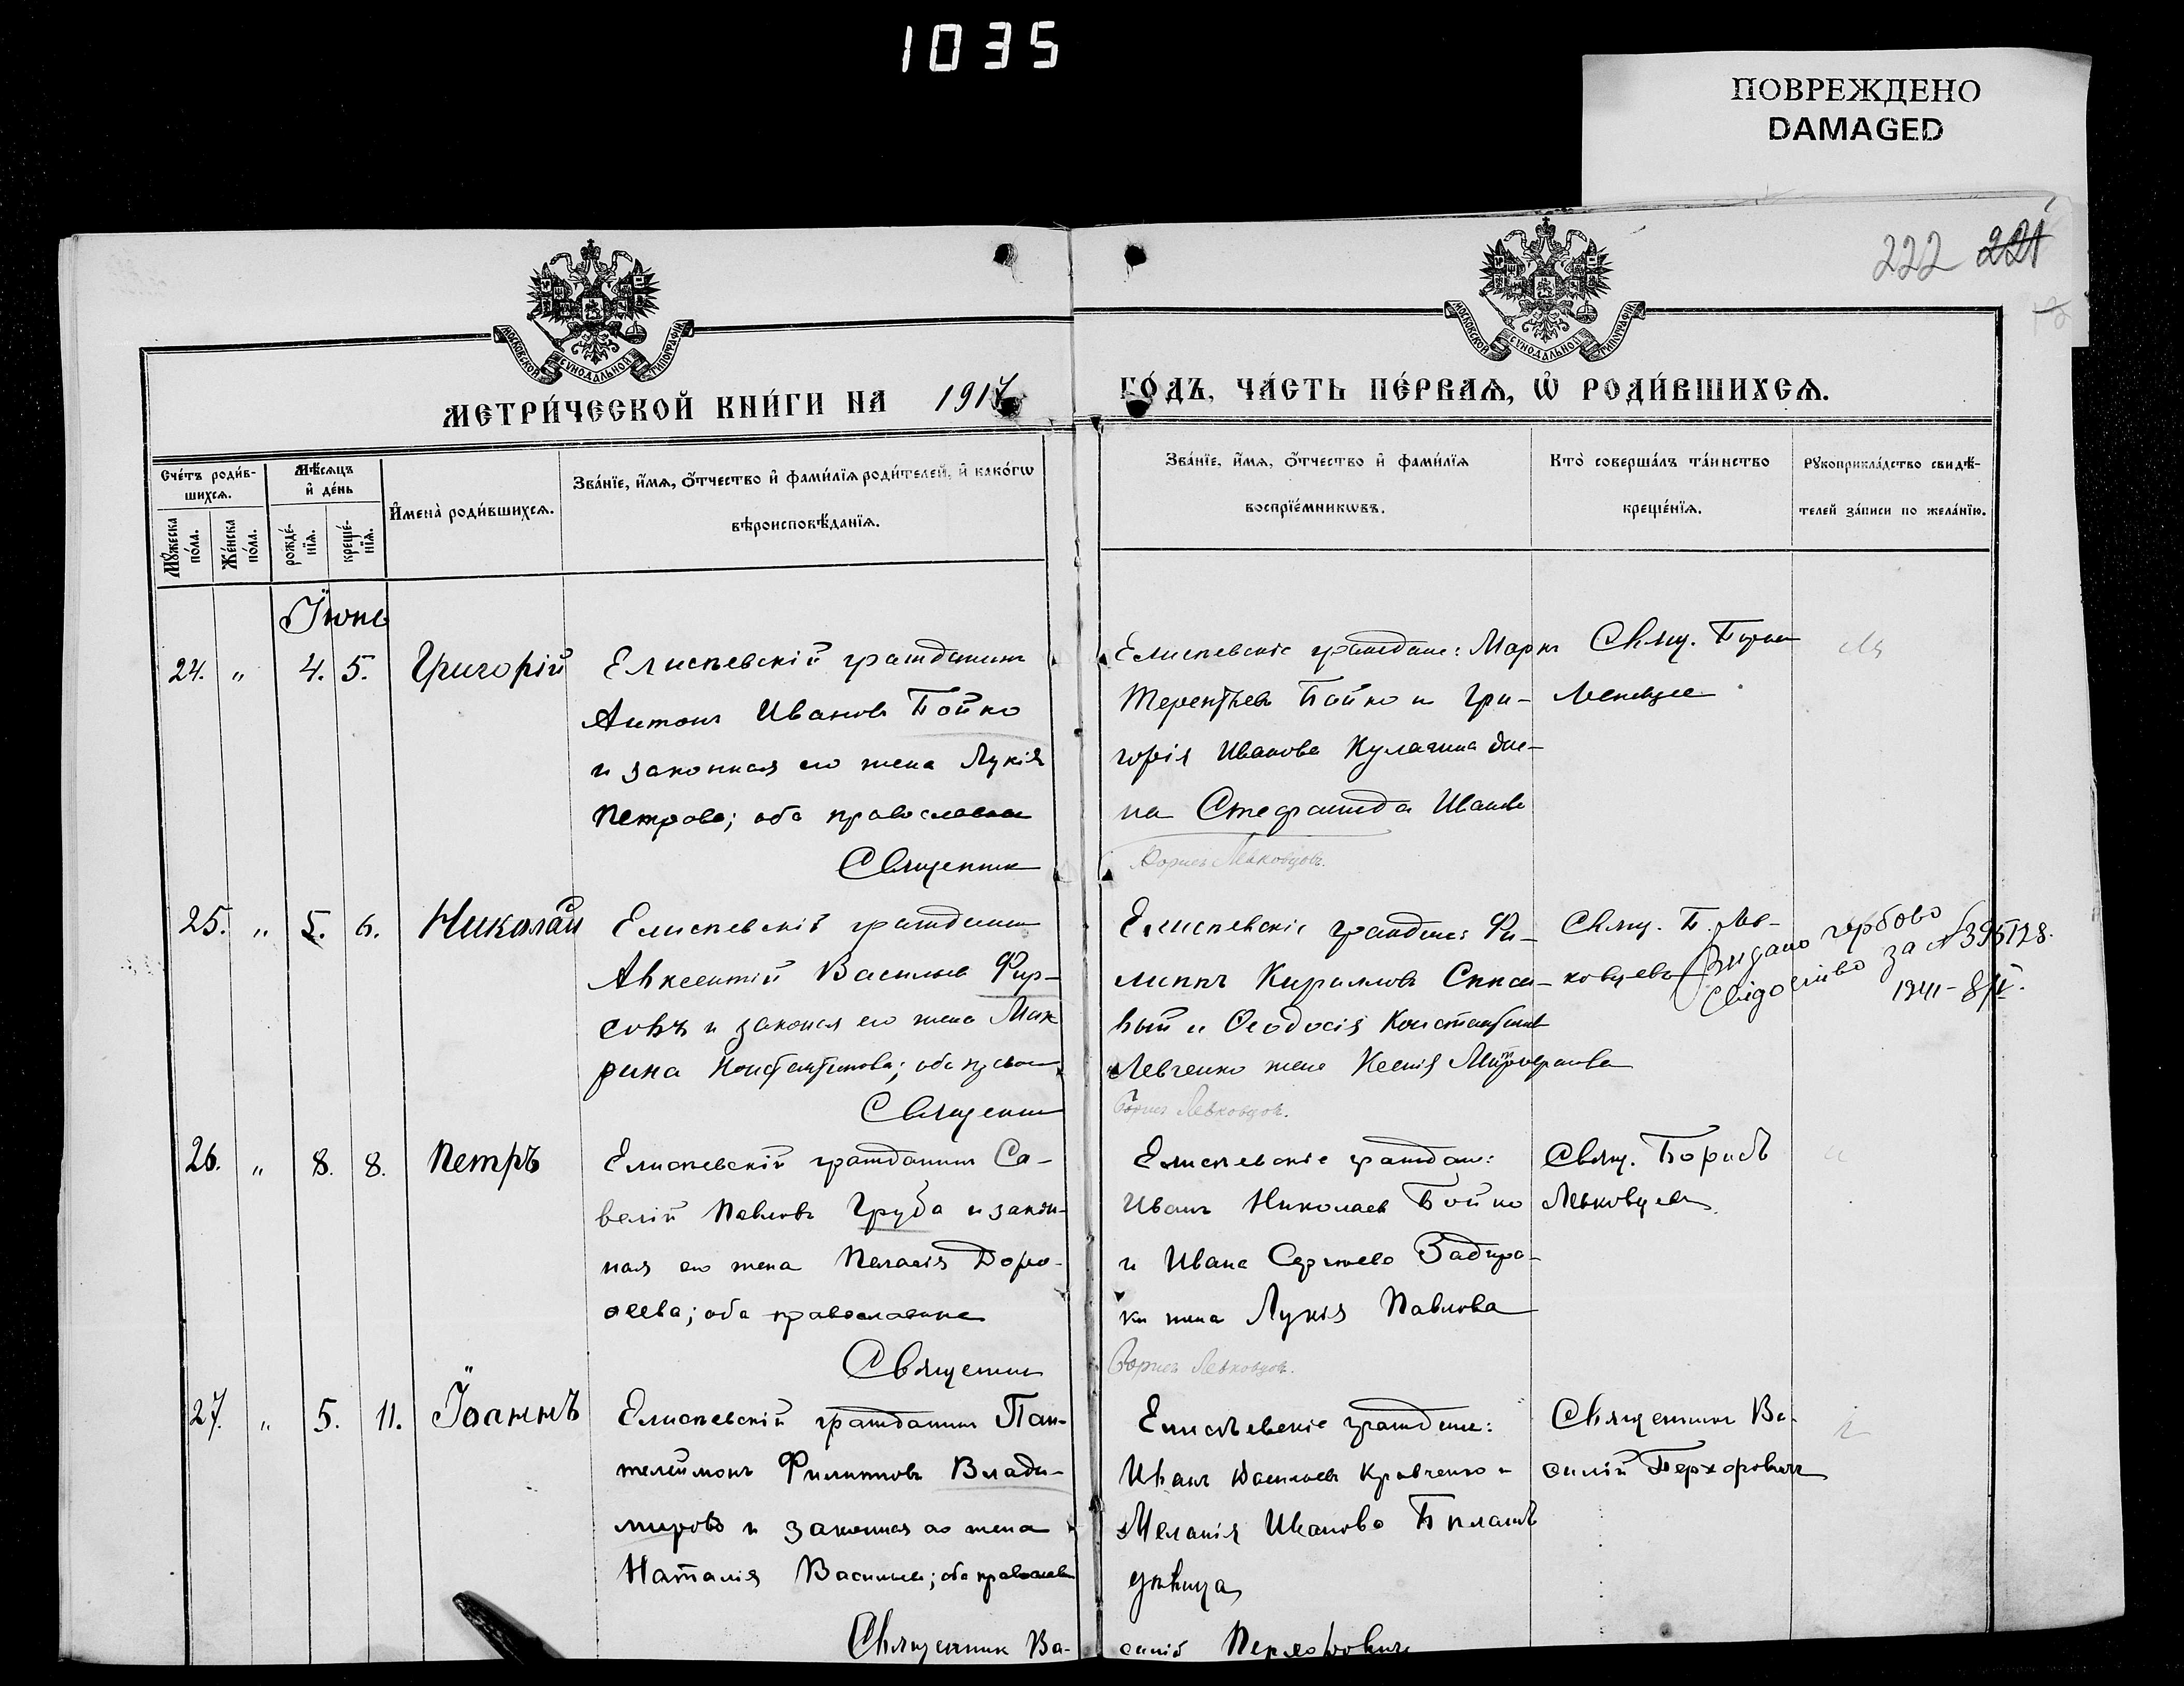 1035
ПОВРЕЖДЕНО
DAMAGED
222 221
МОСКОВСКОЙ СѴНОДАЛЬНОЙ ТИПОГРАФІИ
МОСКОВСКОЙ СѴНОДАЛЬНОЙ ТИПОГРАФІИ
МЕТРИ́ЧЕСКОЙ КНИ́ГИ НА 1917
ГО́ДЪ, ЧА́СТЬ ПЕ́РВАѦ, Ѡ҆ РОДИ́ВШИХСѦ.
Сче́тъ роди́в-
шихсѧ.
Мꙋ́жеска по́ла.
Же́нска по́ла.
Мѣ́сѧцъ
и҆ де́нь
рожде́-
нїѧ.
креще́-
нїѧ.
И҆мена̀ роди́вшихсѧ.
Зва́нїе, и҆́мѧ, ѻ҆́тчество и҆ фами́лїѧ роди́телей, и҆ како́гѡ
вѣроисповѣ́данїѧ.
Зва́нїе, и҆́мѧ, ѻ҆́тчество и҆ фами́лїѧ
воспрїе́мникѡвъ.
Кто̀ соверша́лъ та́инство
креще́нїѧ.
Рꙋкоприкла́дство свидѣ́-
телей за́писи по жела́нїю.
Іюнь
24. " 4. 5. Григорій
Елисѣевскій гражданинъ
Антонъ Ивановъ Бойко
и законная его жена Лукія
Петрова; оба православные
Священникъ
Елисѣевскіе граждане: Маркъ
Терентьевъ Бойко и Гри-
горія Иванова Кулагина
на Стефанида Иванова
Борисъ Левковцовъ.
Свящ. Борисъ
Левковцевъ
25. " 5. 6. Николай
Елисѣевскій гражданинъ
Авксентій Васильевъ Фир-
совъ и законная его жена Мак
рина Константинова; оба правосл
Священникъ
Елисѣевскіе граждане: Фи-
липпъ Кирилловъ
и Ѳеодосія Константинова
Левченко жена Ксенія Митрофанова
Борисъ Левковцовъ.
Свящ. Б. Лев-
ковцевъ
Видано гербово
свідоцтво за № 395128.
1941 - 8/V.
26. " 8. 8. Петръ
Елисѣевскій гражданинъ Са-
велій Павловъ Груба и закон-
ная его жена Пелагія Доро-
ѳеева; оба православные
Священникъ
Елисѣевскіе граждане:
Иванъ Николаевъ Бойко
и Ивана Сергѣева Задира-
ки жена Лукія Павлова
Борисъ Левковцовъ.
Свящ. Борисъ
Левковцевъ
27. " 5. 11. Іоаннъ
Елисѣевскій гражданинъ Пан-
телеймонъ Филипповъ Влади-
мировъ и законная его жена
Наталія Васильева; оба православ
Священникъ Ва-
Елисѣевскіе граждане:
Иванъ Васильевъ Кравченко и
Меланія Иванова
дѣвица
силій
Священникъ Ва-
силій